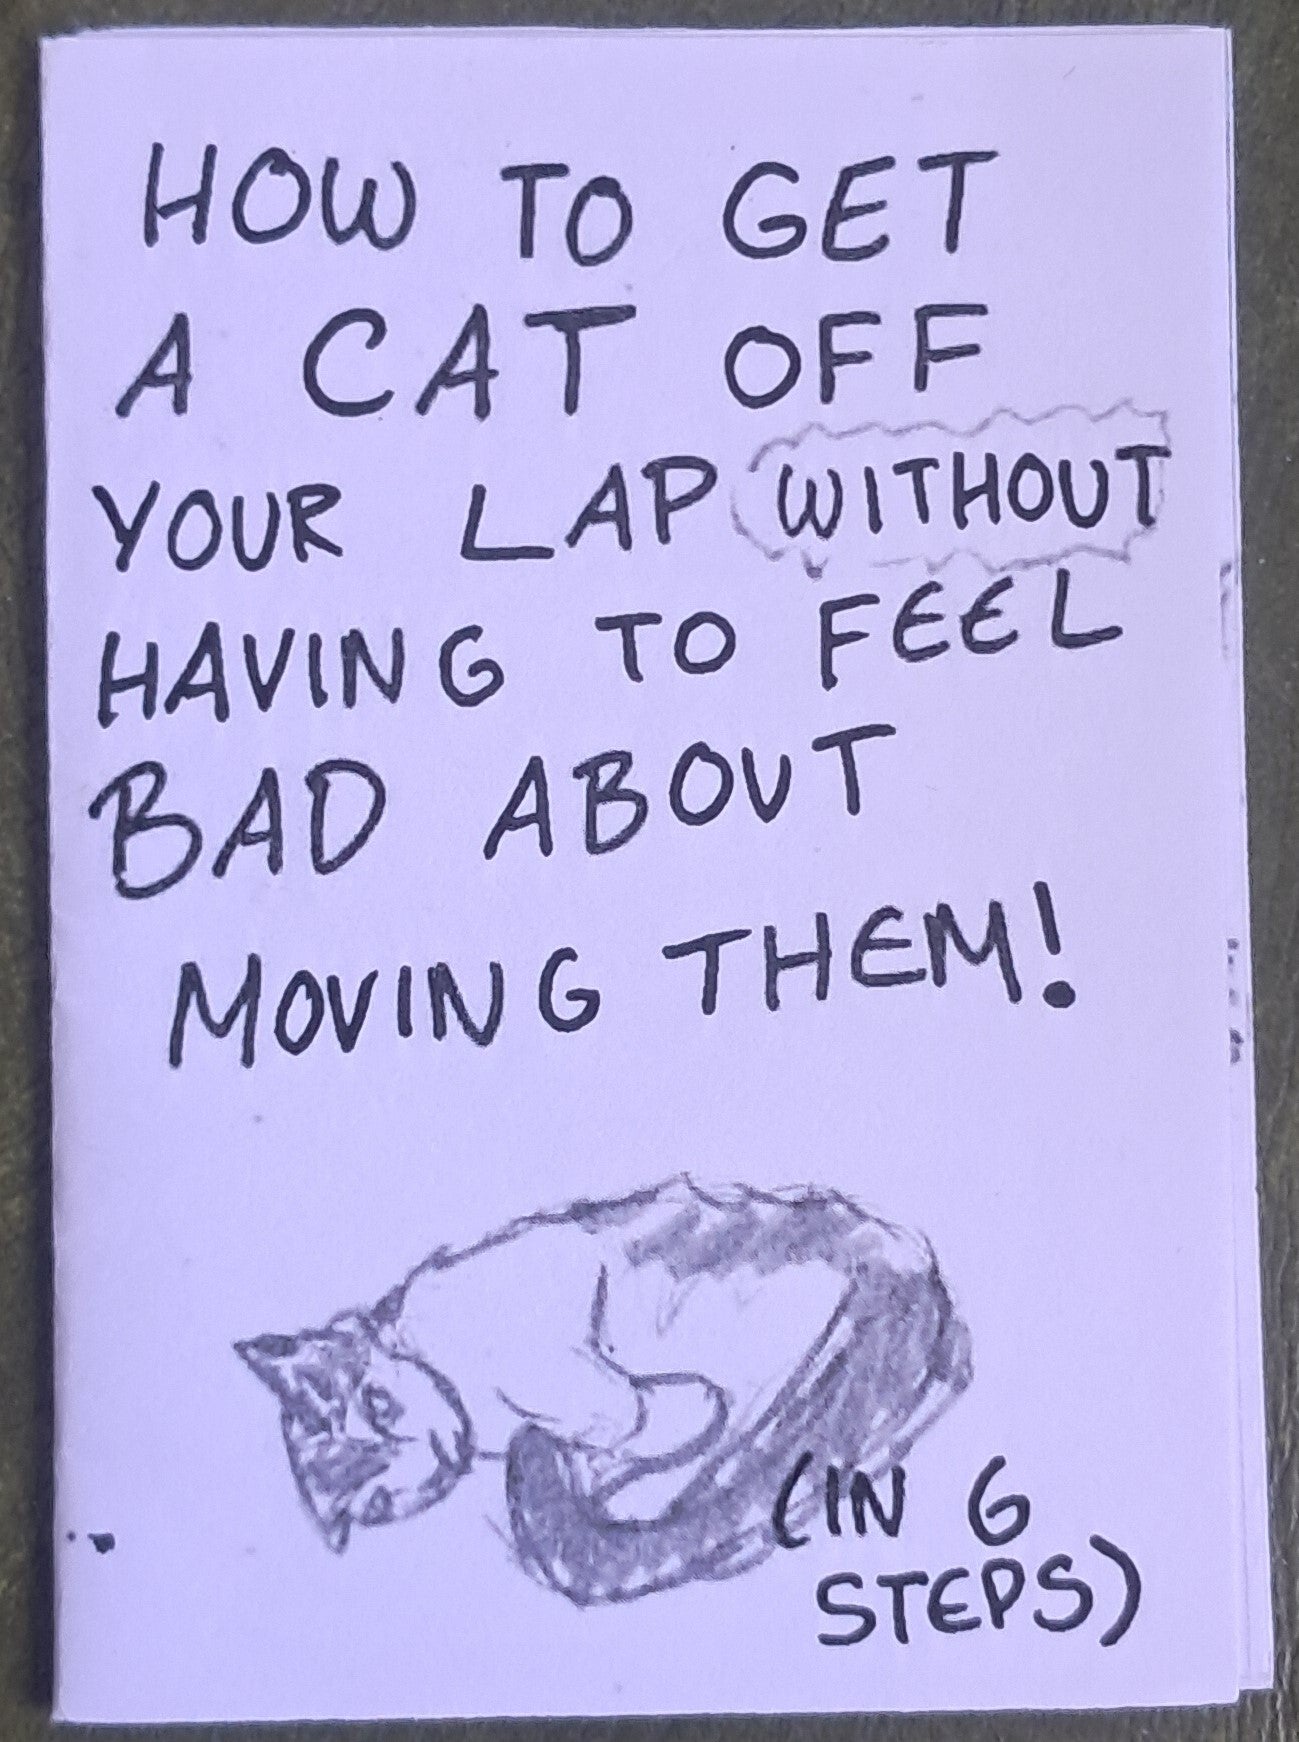 HOW TO GET
A CAT OFF
YOUR LAP WITHOUT
HAVING TO FEEL
BAD ABOUT
MOVING THEM!
(IN 6
STEPS)